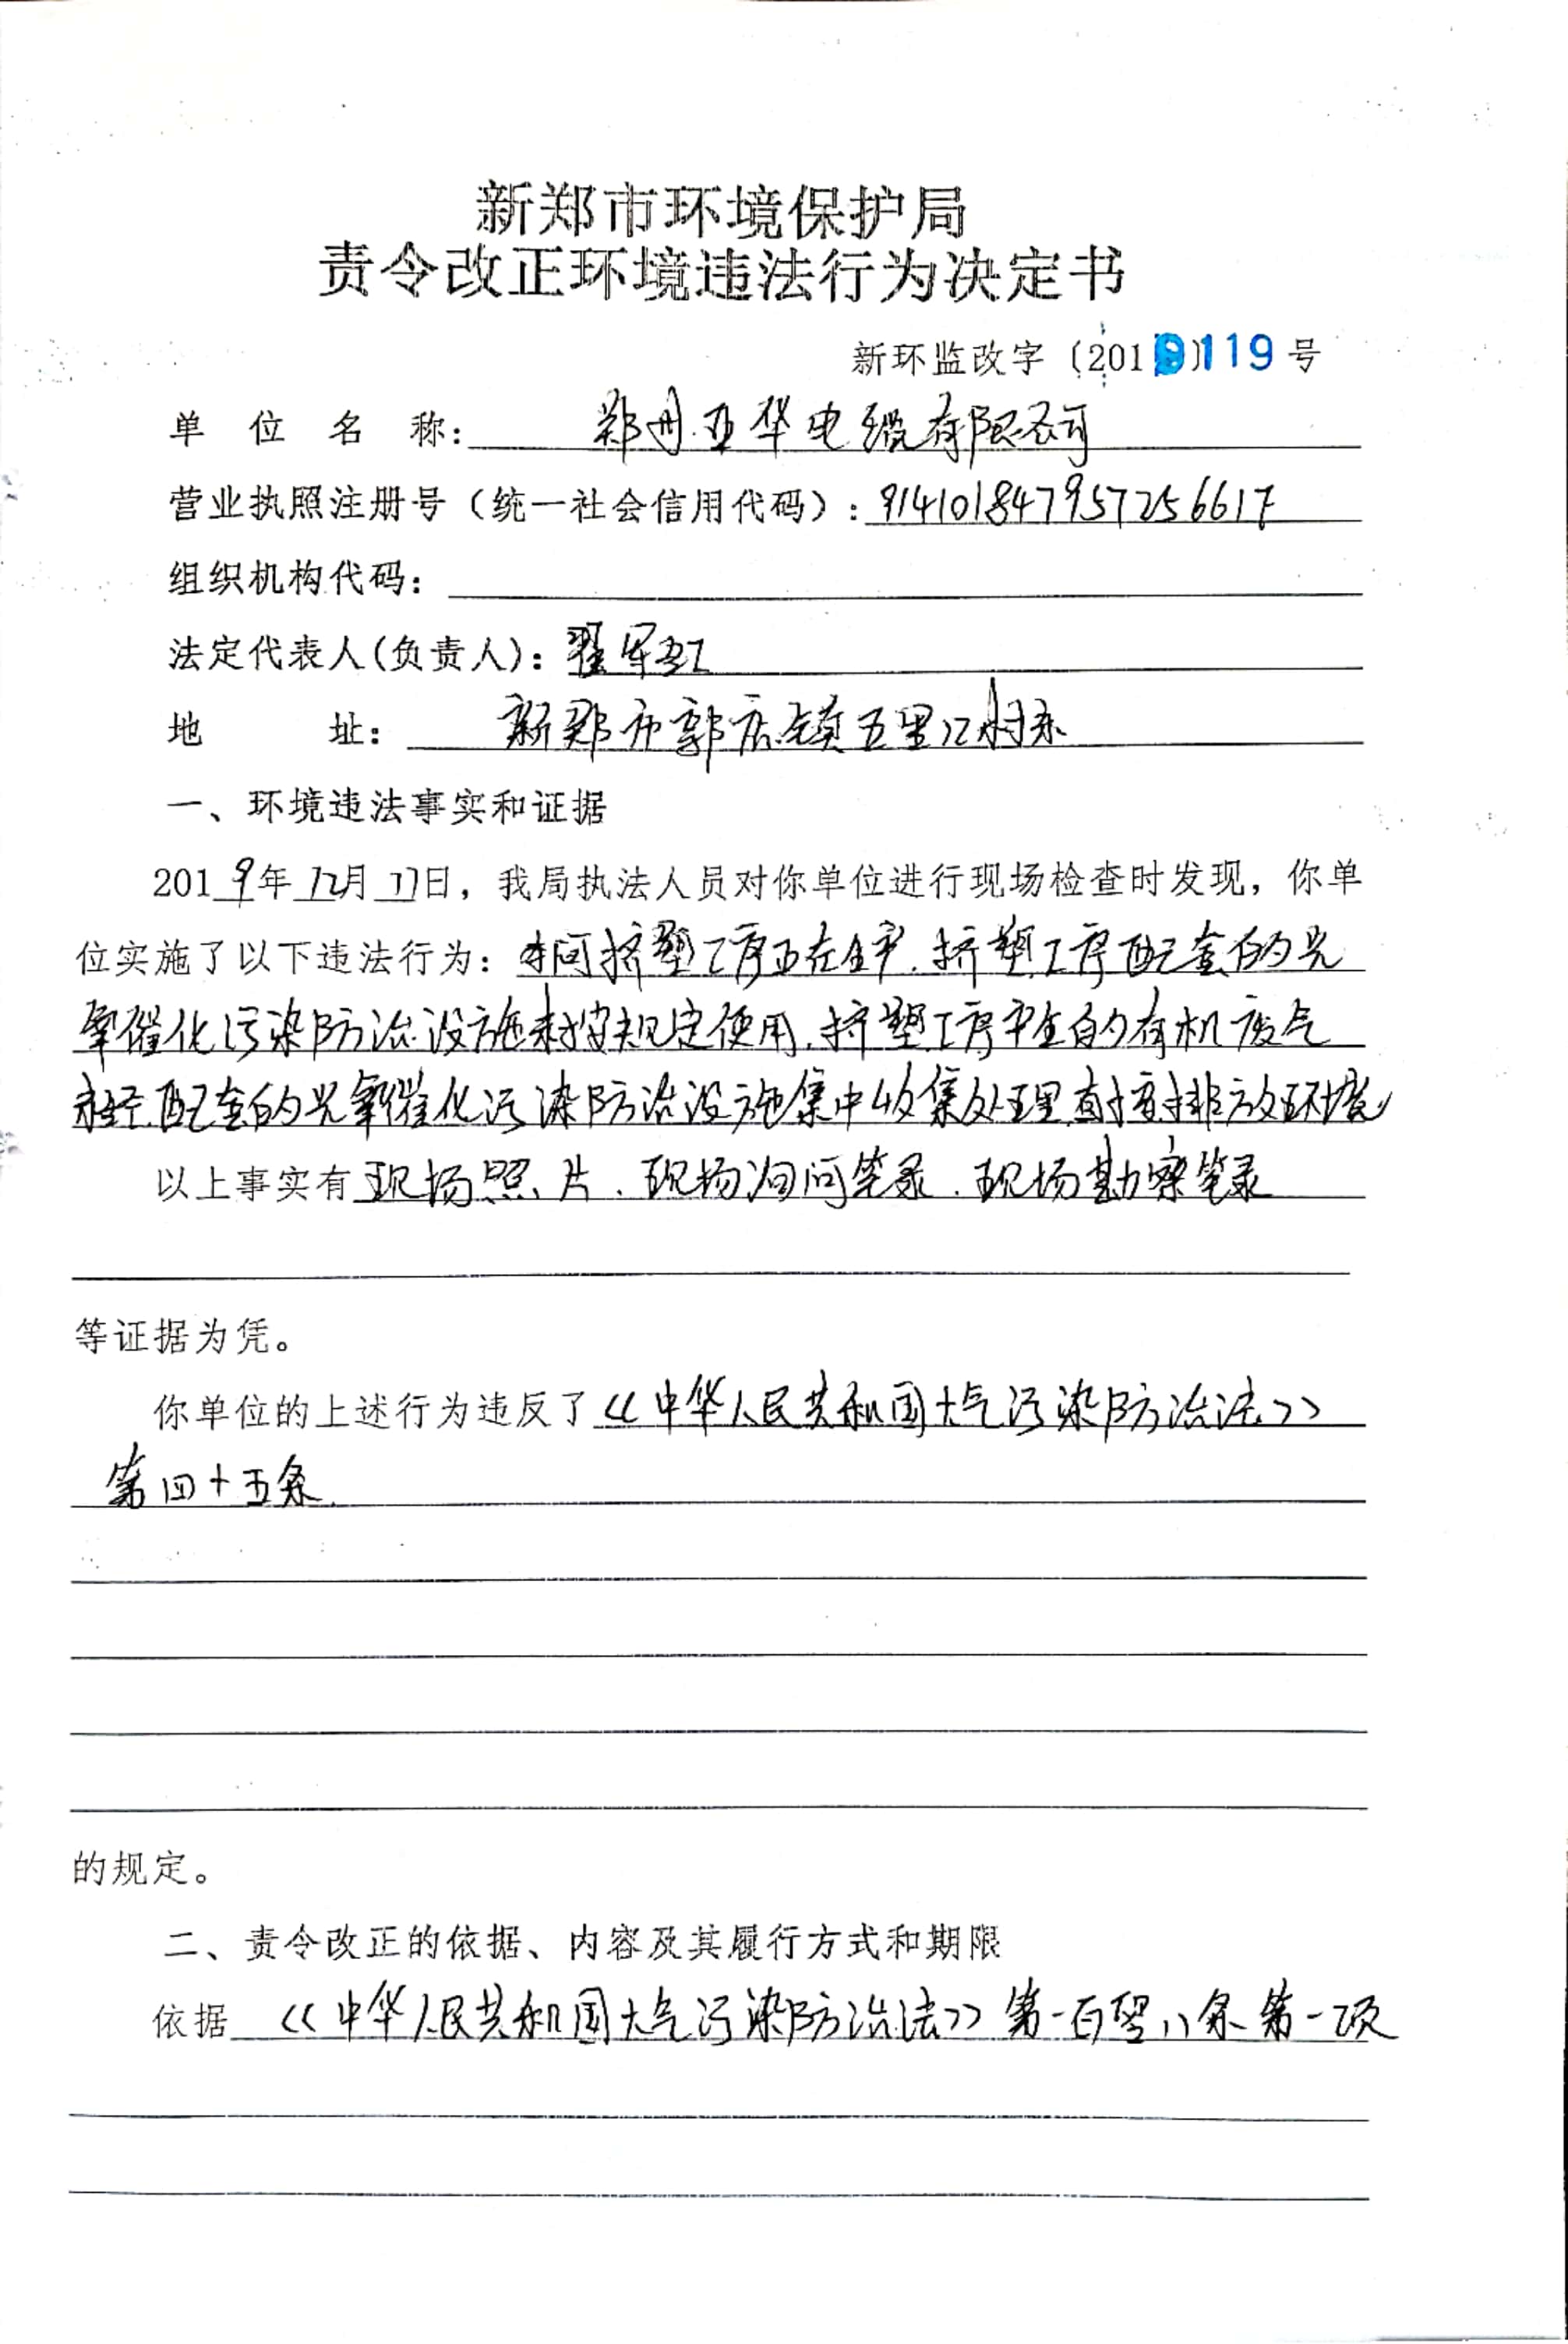 新郑市环境保护局
责令改正环境违法行为决定书
新环监改字〔2019〕119号
单位名称：郑州亚华电缆有限公司
营业执照注册号（统一社会信用代码）：91410184795725661F
组织机构代码：
法定代表人(负责人)：翟军红
地址：新郑市郭店镇五里口村东
一、环境违法事实和证据
2019年12月17日，我局执法人员对你单位进行现场检查时发现，你单
位实施了以下违法行为：车间挤塑工序正在生产，挤塑工序配套的光
氧催化污染防治设施未按规定使用，挤塑工序产生的有机废气
未经配套的光氧催化污染防治设施集中收集处理直接排放环境
以上事实有现场照片、现场询问笔录、现场勘察笔录
等证据为凭。
你单位的上述行为违反了《中华人民共和国大气污染防治法》
第四十五条
的规定。
二、责令改正的依据、内容及其履行方式和期限
依据《中华人民共和国大气污染防治法》第一百零八条第一项